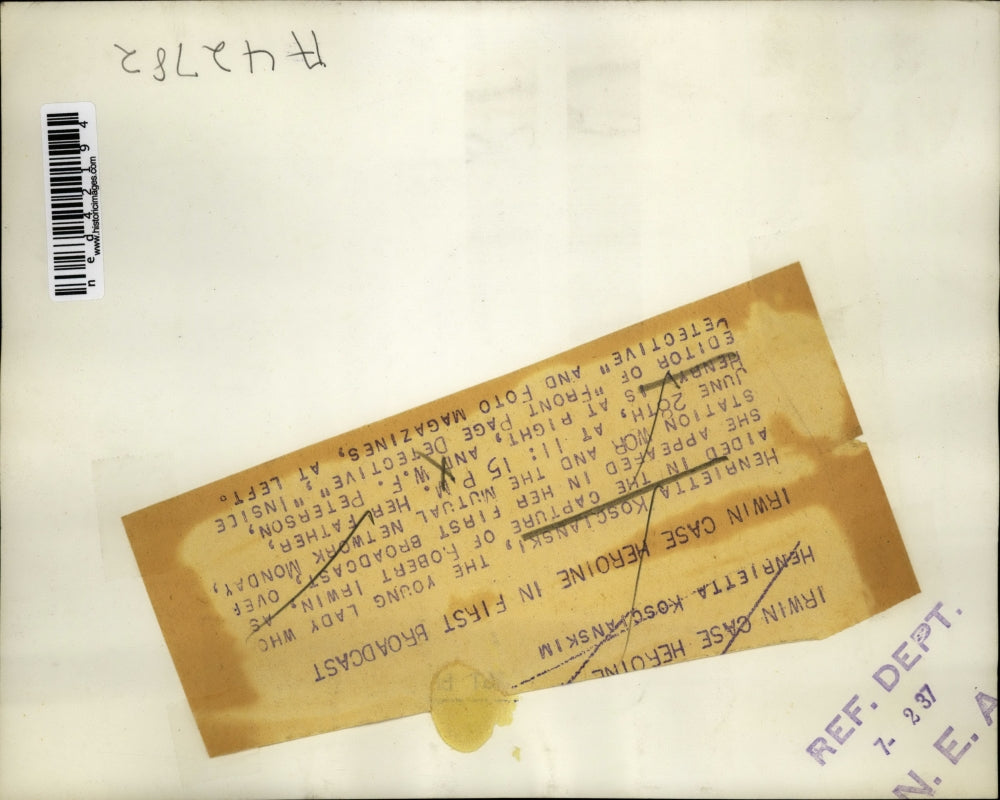 A42782
ned42194
www.historicimages.com
IRWIN CASE HEROINE
HENRIETTA KOSCIANSKIM
IRWIN CASE HEROINE IN FIRST BROADCAST
HENRIETTA KOSCIANSKI, THE YOUNG LADY WHO
AIDED IN THE CAPTURE OF ROBERT IRWIN, AS
SHE APPEARED IN HER FIRST BROADCAST, OVER
STATION WOR AND THE MUTUAL NETWORK MONDAY,
JUNE 28TH, AT 11:15 P.M. HER FATHER,
HENRY IS AT RIGHT, AND W.F. PETERSON,
EDITOR OF "FRONT PAGE DETECTIVE", "INSIDE
DETECTIVE" AND FOTO MAGAZINES, AT LEFT.
REF. DEPT.
7- 2 37
N. E. A